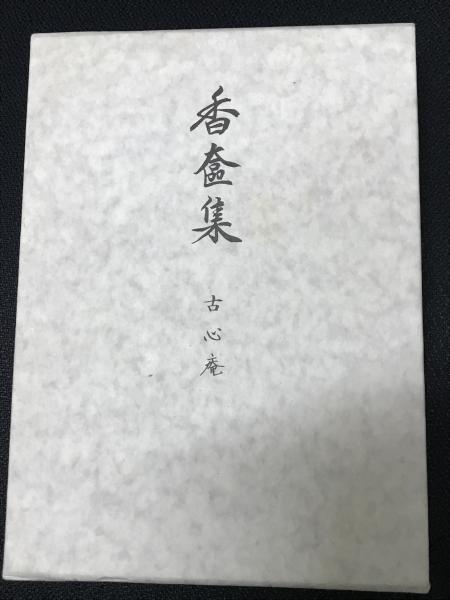 香奩集
古心庵